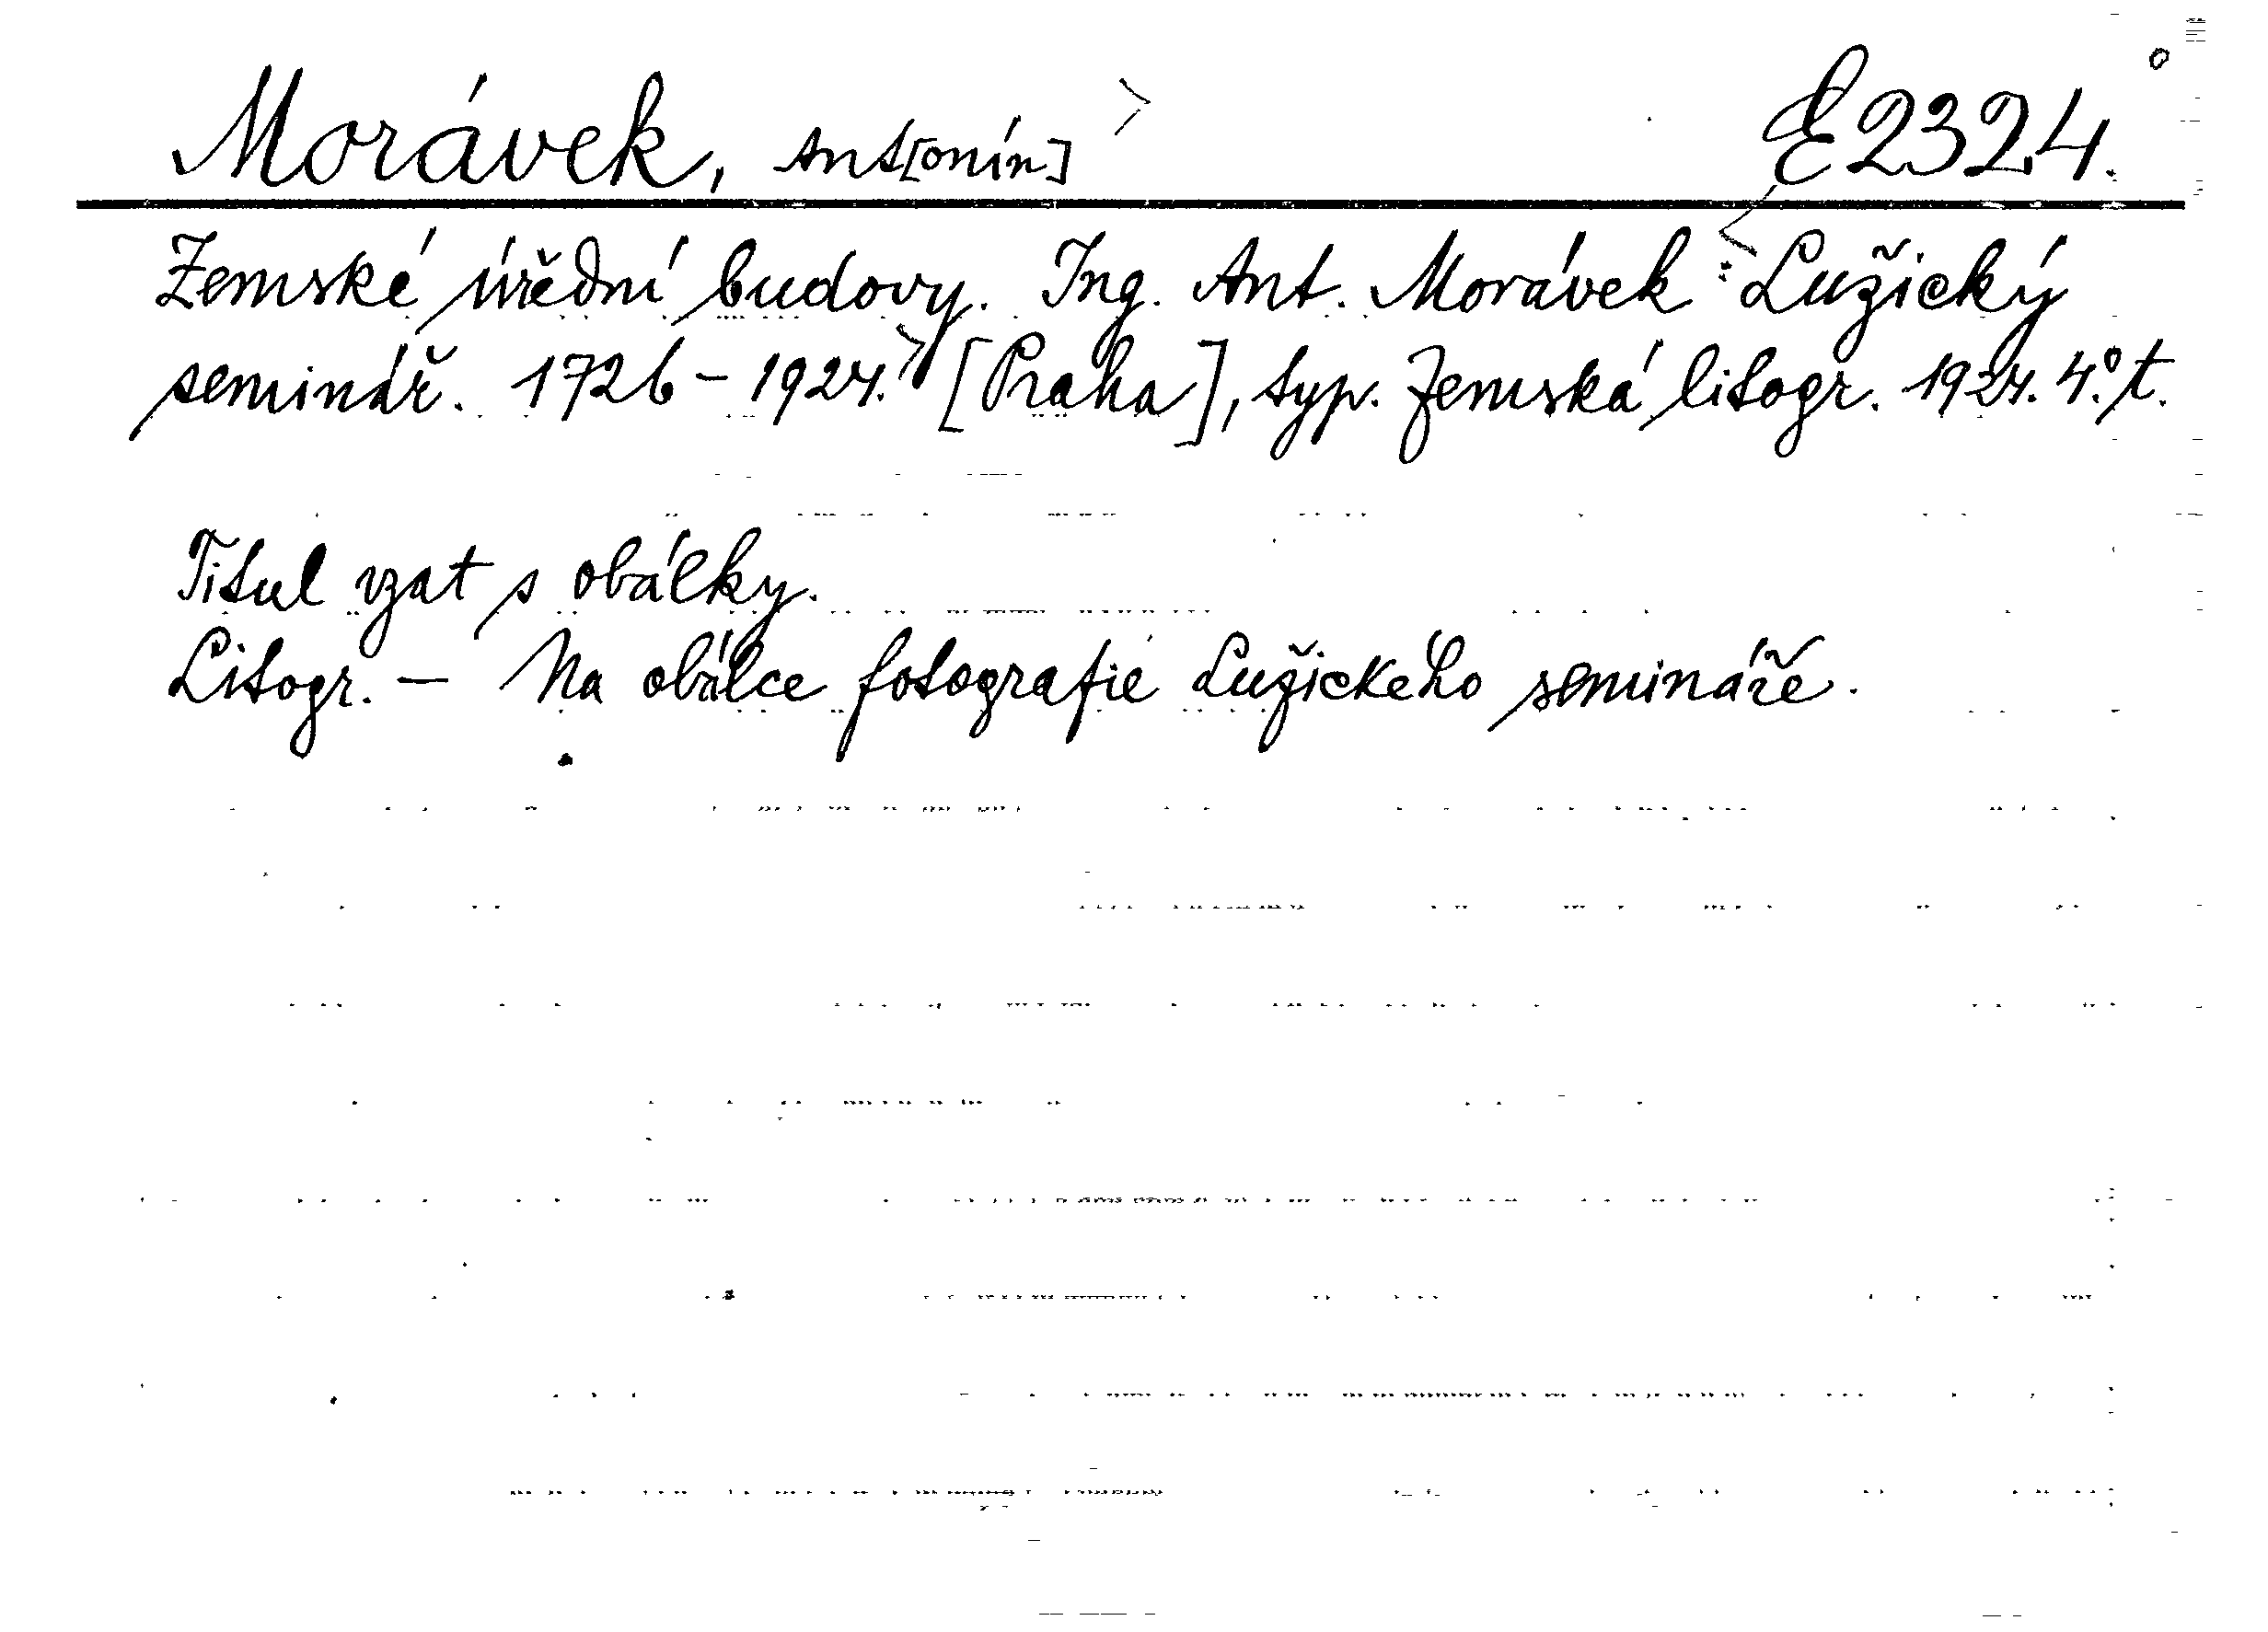 Morávek, Ant[onín] E 2324.
Zemské úřední budovy. Ing. Ant. Morávek: Lužický
seminář. 1726 – 1924. [Praha], typ. Zemská litogr. 1924. 4.° t.
Titul vzat s obálky.
Litogr. — Na obálce fotografie Lužického semináře.